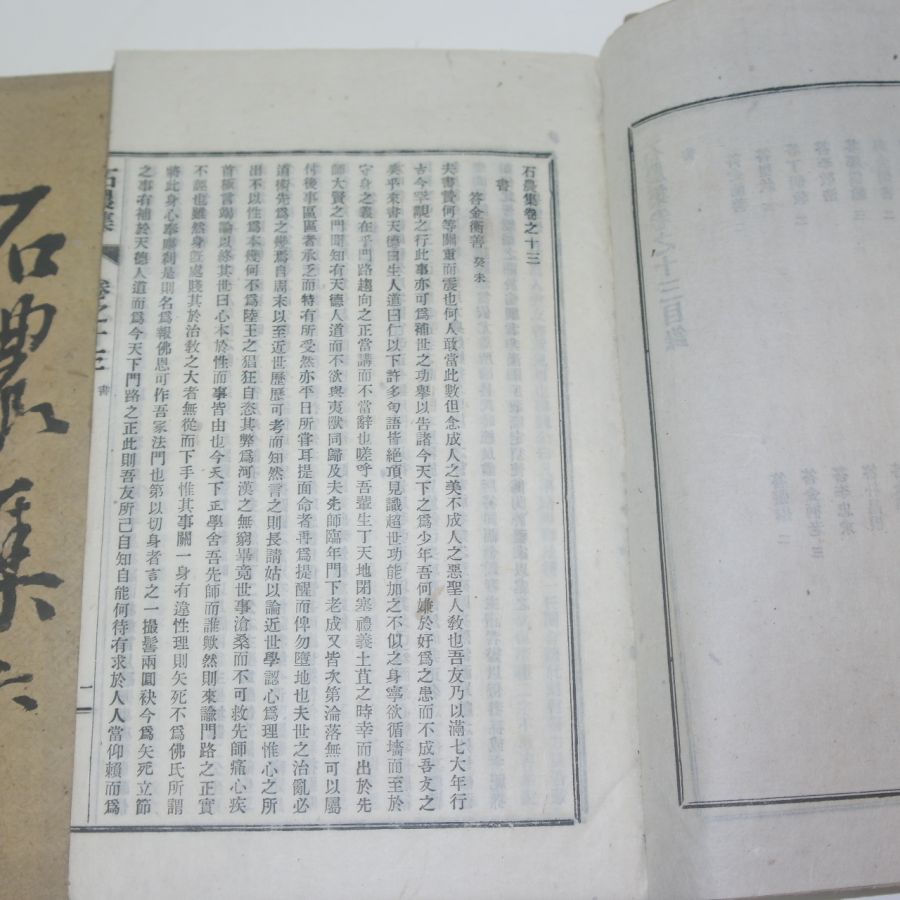 石農集卷之十三
書
答金衡善 癸未
夫書贄何等關重而震也何人敢當此數但念成人之美不成人之惡聖人敎也吾友乃以滿七大年行
古今罕覯之行此事亦可爲補世之功擧以告諸今天下之爲少年吾何嫌於好爲之患而不成吾友之
美乎來書天德曰生人道曰仁以下許多句語皆絶頂見識超世功能加之不似之身寧欲循墻而至於
守身之義在乎門路趨向之正當講而不當辭也嗟呼吾輩生丁天地閉塞禮義土苴之時幸而出於先
師大賢之門聞知有天德人道而不欲與夷獸同歸及夫先師臨年門下老成又皆次第淪落無可以屬
付後事區區者承乏而特有所受然亦平日所嘗耳提面命者再爲提醒而俾勿墮地也夫世之治亂必
道術先爲之幾焉自周末以至近世歷歷可考而知然言之則長請姑以論近世學認心爲理惟心之所
出不以性爲本幾何不爲陸王之猖狂自恣其弊爲河漢之無窮畢竟世事滄桑而不可救先師痛心疾
首極言竭論以終其世曰心本於性而事皆由也今天下正學舍吾先師而誰歟然則來諭門路之正實
不誣也雖然身旣處賤其於治敎之大者無從而下手惟其事關一身有違性理則矢死不爲佛氏所謂
將此身心奉塵刹是則名爲報佛恩可作吾家法門也第以切身者言之一撮髻兩圓袂今爲矢死立節
之事有補於天德人道而爲今天下門路之正此則吾友所已自知自能何待有求於人人當仰賴而爲
石農集
卷之十三
書
一
石農集
六